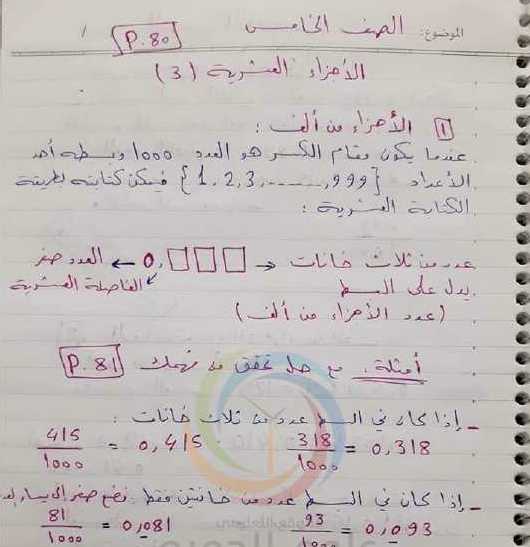 الموضوع: الصف الخامس
P.80
الأجزاء العشرية (3)
1 الأجزاء من ألف :
عندما يكون مقام الكسر هو العدد 1000 وبسطه أحد
الأعداد {1, 2, 3, ........., 999} فيمكن كتابته بطريقة
الكتابة العشرية :
العدد صفر ← 0,□□□ → عدد من ثلاث خانات
الفاصلة العشرية
يدل على البسط
(عدد الأجزاء من ألف)
أمثلة، مع حل تحقق من فهمك P.81
- إذا كان في البسط عدد من ثلاث خانات :
318/1000 = 0,318
415/1000 = 0,415
- إذا كان في البسط عدد من خانتين فقط نضع صفر إلى يساره
93/1000 = 0,093
81/1000 = 0,081